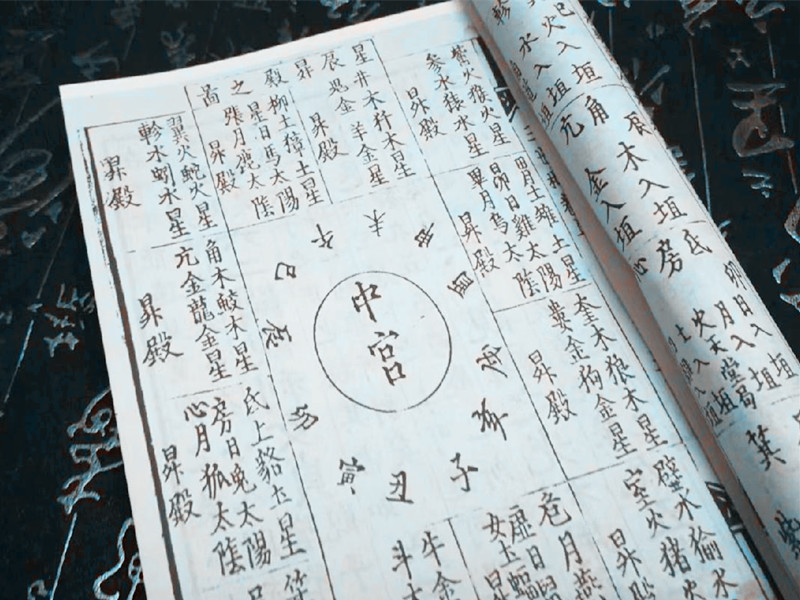 觜火猴火星
參水猿水星
昇殿
星井木犴木星
辰鬼金羊金星
昇殿
昇
殿柳土獐土星
之星日馬太陽
圖張月鹿太陰
昇殿
翼火蛇火星
軫水蚓水星
昇殿
胃土雉土星
昴日雞太陽
畢月烏太陰
昇殿
奎木狼木星
婁金狗金星
昇殿
角木蛟木星
亢金龍金星
昇殿
氐土貉土星
房日兔太陽
心月狐太陰
昇殿
中宮
午
未
申
酉
戌
亥
子
丑
寅
卯
辰
巳
壁水㺄水
室火猪火
昇殿
危月燕
虛日鼠
女土蝠
昇
牛金
斗木
巳火入垣
軫水入垣
角辰木入垣
亢金入垣
氐
房
心
卯日入垣
箕